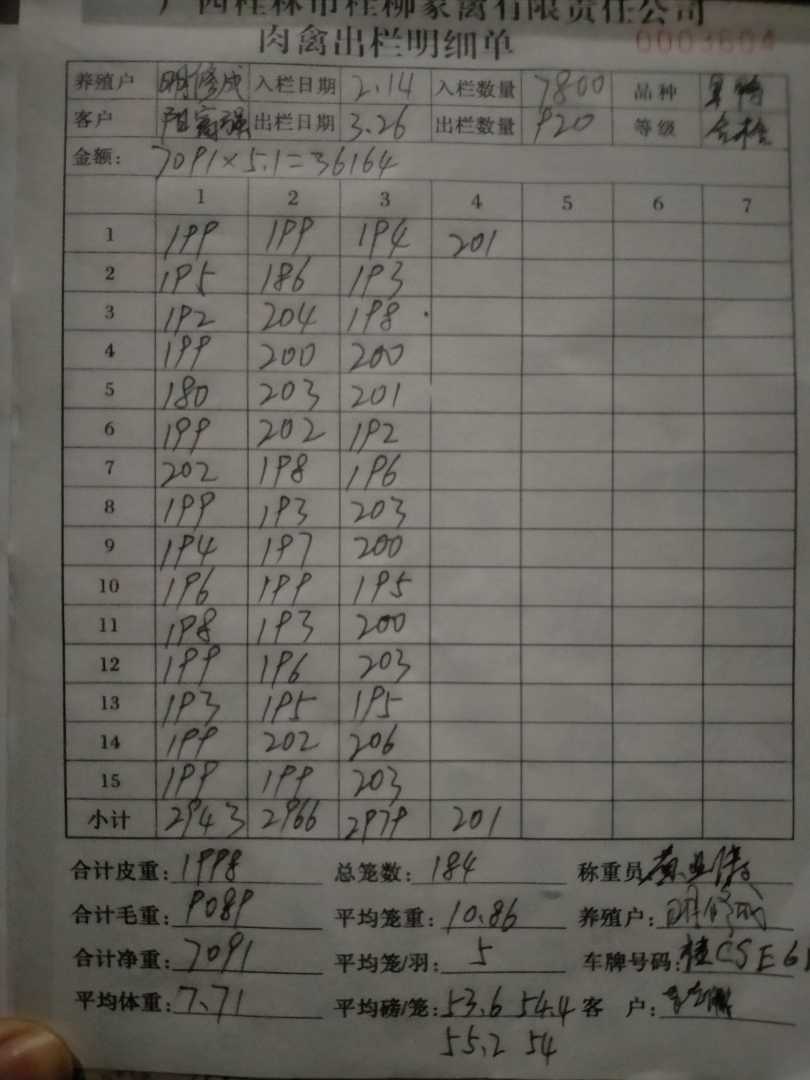 广西桂林市桂柳家禽有限责任公司
肉禽出栏明细单 0003604
养殖户 明修成 入栏日期 2.14 入栏数量 7800 品种
客户 阳富强 出栏日期 3.26 出栏数量 920 等级 合格
金额: 7091×5.1=36164
1 2 3 4 5 6 7
1 199 199 194 201
2 195 186 193
3 192 204 198
4 199 200 200
5 180 203 201
6 199 202 192
7 202 198 196
8 199 193 203
9 194 197 200
10 196 199 195
11 198 193 200
12 199 196 203
13 193 195 195
14 199 202 206
15 199 199 203
小计 2943 2966 2979 201
合计皮重: 1998 总笼数: 184 称重员
合计毛重: 9089 平均笼重: 10.86 养殖户: 明修成
合计净重: 7091 平均笼/羽: 5 车牌号码: 桂CSE61
平均体重: 7.71 平均磅/笼: 53.6 54.4 客 户:
55.2 54